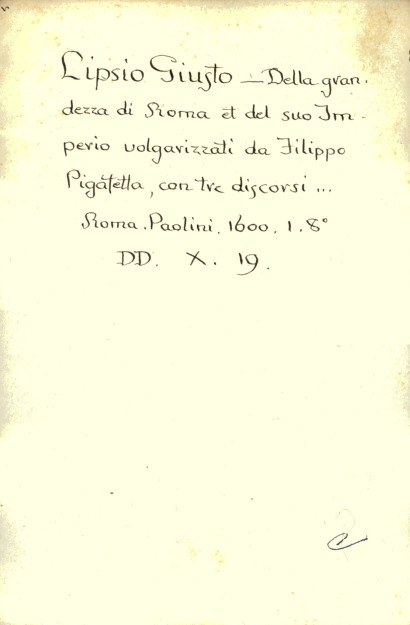 Lipsio Giusto — Della gran-
dezza di Roma et del suo Im-
perio volgarizzati da Filippo
Pigafetta, con tre discorsi ...
Roma. Paolini. 1600. 1. 8°
DD. X. 19.